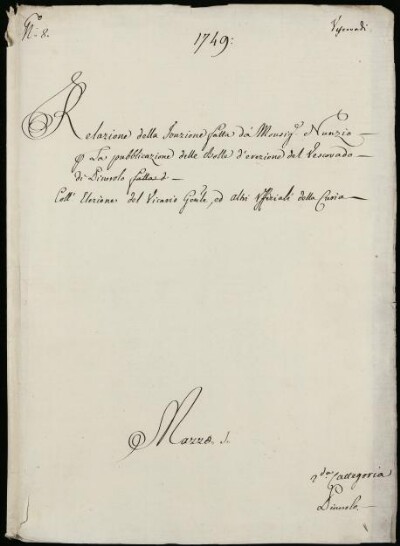 N.º 8.
Vescovadi
1749:
Relazione della Funzione fatta da Monsig.r Nunzio
p la pubblicazione delle Bolle d'erezione del Vescovado
di Pinerolo
Coll' Elezione del Vicario Gen.le, ed altri Uffiziali della Curia
Mazzo
2.da Cattegoria
Pinerolo